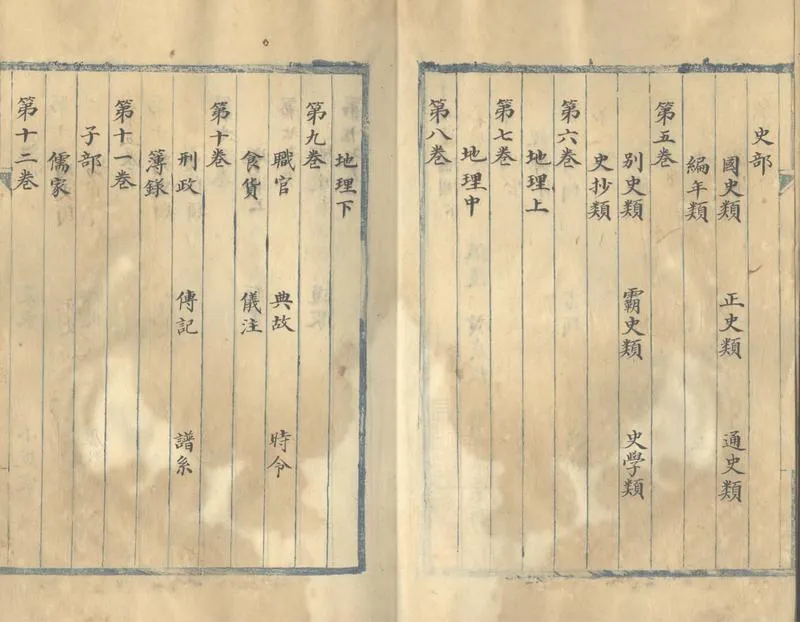 史部
國史類 正史類 通史類
編年類
第五卷
別史類 霸史類 史學類
史抄類
第六卷
地理上
第七卷
地理中
第八卷
地理下
第九卷
職官 典故 時令
食貨 儀注
第十卷
刑政 傳記 譜系
簿錄
第十一卷
子部
儒家
第十二卷